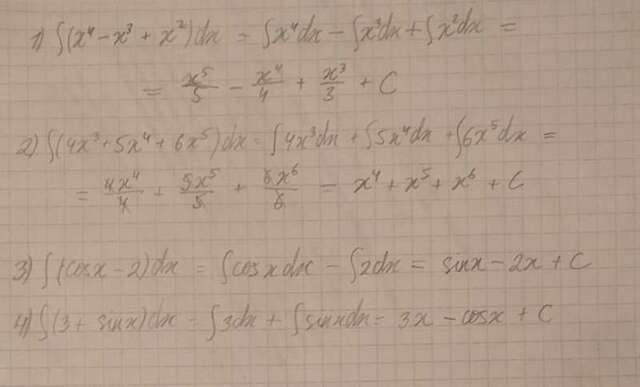 1) ∫(x⁴ - x³ + x²)dx = ∫x⁴dx - ∫x³dx + ∫x²dx =
= x⁵/5 - x⁴/4 + x³/3 + C
2) ∫(4x³ + 5x⁴ + 6x⁵)dx = ∫4x³dx + ∫5x⁴dx + ∫6x⁵dx =
= 4x⁴/4 + 5x⁵/5 + 6x⁶/6 = x⁴ + x⁵ + x⁶ + C
3) ∫(cosx - 2)dx = ∫cosxdx - ∫2dx = sinx - 2x + C
4) ∫(3 + sinx)dx = ∫3dx + ∫sinxdx = 3x - cosx + C